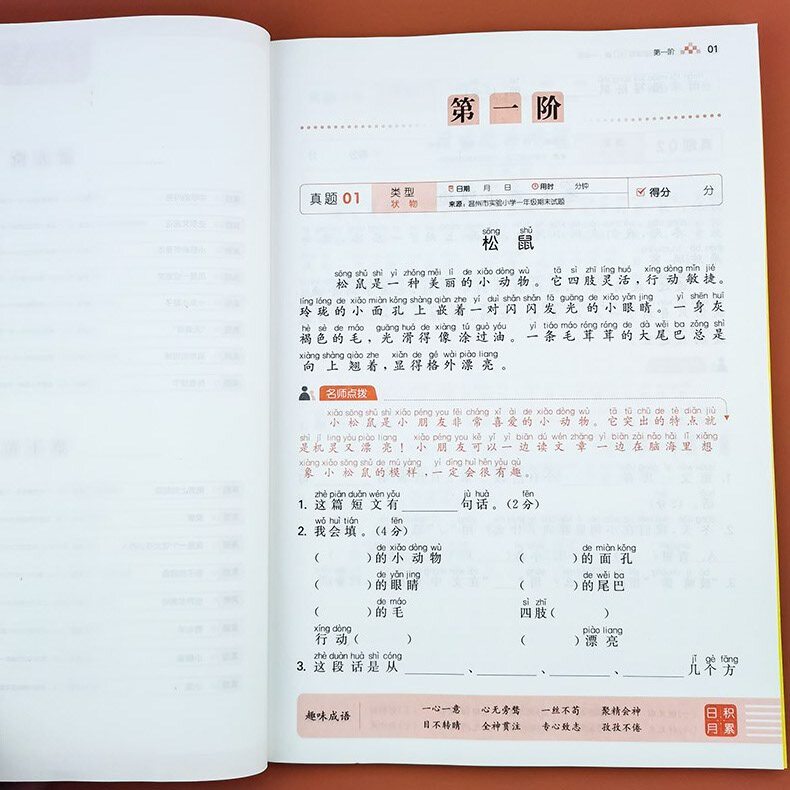 第一阶 01
第一阶
真题 01 类型 状物 日期 月 日 用时 分钟 得分 分
来源：温州市实验小学一年级期末试题
sōng shǔ
松 鼠
sōng shǔ shì yì zhǒng měi lì de xiǎo dòng wù tā sì zhī líng huó xíng dòng mǐn jié
松鼠是一种美丽的小动物。它四肢灵活，行动敏捷。
líng lóng de xiǎo miàn kǒng shàng qiàn zhe yí duì shǎn shǎn fā guāng de xiǎo yǎn jing yì shēn huī
玲珑的小面孔上嵌着一对闪闪发光的小眼睛。一身灰
hè sè de máo guāng huá de xiàng tú guò yóu yì tiáo máo róng róng de dà wěi ba zǒng shì
褐色的毛，光滑得像涂过油。一条毛茸茸的大尾巴总是
xiàng shàng qiào zhe xiǎn de gé wài piào liang
向上翘着，显得格外漂亮。
名师点拨
xiǎo sōng shǔ shì xiǎo péng you fēi cháng xǐ ài de xiǎo dòng wù tā tū chū de tè diǎn jiù
小松鼠是小朋友非常喜爱的小动物。它突出的特点就
shì jī líng yòu piào liang xiǎo péng you kě yǐ yì biān dú wén zhāng yì biān zài nǎo hǎi lǐ xiǎng
是机灵又漂亮！小朋友可以一边读文章一边在脑海里想
xiàng xiǎo sōng shǔ de mú yàng yí dìng huì hěn yǒu qù
象小松鼠的模样，一定会很有趣。
zhè piān duǎn wén yǒu jù huà fēn
1. 这篇短文有______句话。(2分)
wǒ huì tián fēn
2. 我会填。(4分)
de xiǎo dòng wù de miàn kǒng
( )的小动物 ( )的面孔
de yǎn jing de wěi ba
( )的眼睛 ( )的尾巴
de máo sì zhī
( )的毛 四肢( )
xíng dòng piào liang
行动( ) ( )漂亮
zhè duàn huà shì cóng jǐ gè fāng
3. 这段话是从______、______、______、______几个方
趣味成语 一心一意 心无旁骛 一丝不苟 聚精会神
目不转睛 全神贯注 专心致志 孜孜不倦
日积月累